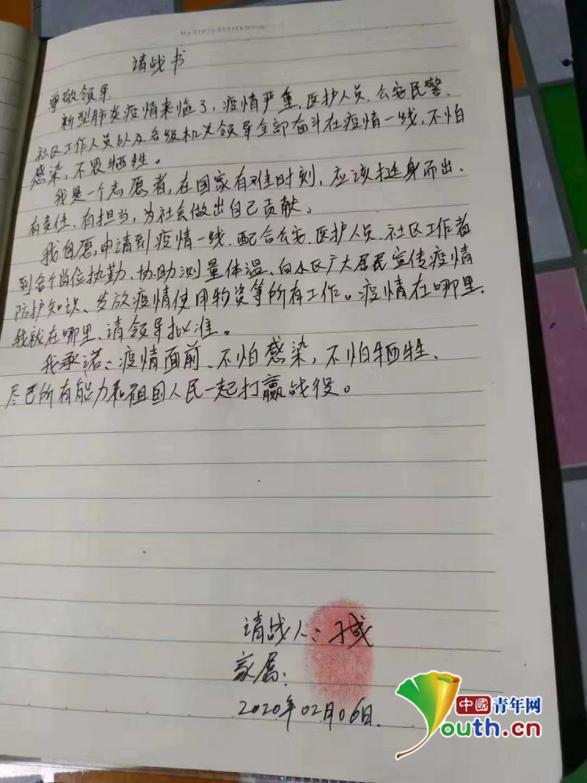 请战书
尊敬领导
新型肺炎疫情来临了，疫情严重，医护人员、公安民警、
社区工作人员以及各级机关领导全部奋斗在疫情一线，不怕
感染，不畏牺牲。
我是一个志愿者，在国家有难时刻，应该挺身而出，
有责任、有担当，为社会做出自己贡献。
我自愿申请到疫情一线，配合公安、医护人员、社区工作者
到各个岗位执勤、协助测量体温、向社区广大居民宣传疫情
防护知识、发放疫情使用物资等所有工作。疫情在哪里，
我就在哪里，请领导批准。
我承诺：疫情面前，不怕感染，不怕牺牲，
尽己所有能力和祖国人民一起打赢战役。
请战人：
家属：
2020年02月06日
中國青年网
Youth.cn